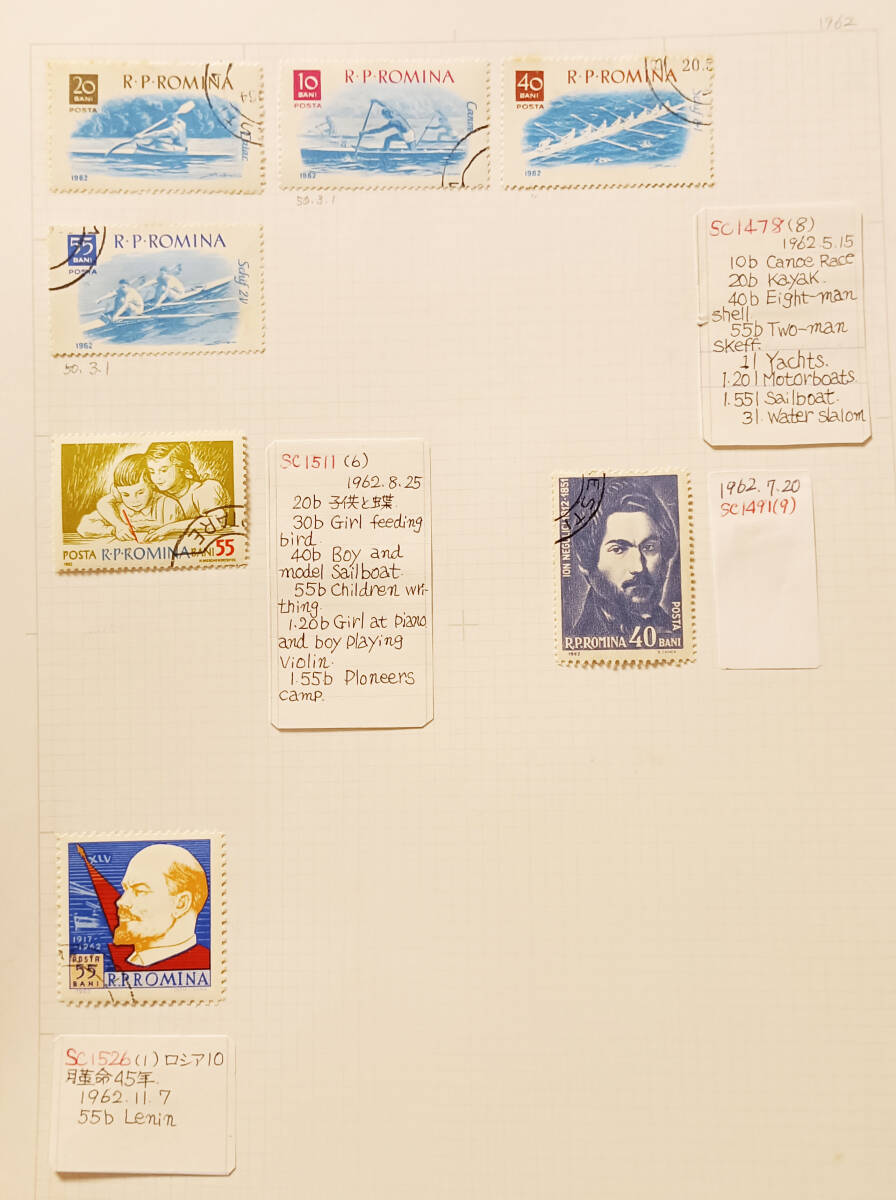 1962
20
BANI
POSTA
R·P·ROMINA
1962
10
BANI
POSTA
R·P·ROMINA
Canoe
1962
50.3.1
40
BANI
POSTA
R·P·ROMINA
20.5
1962
55
BANI
POSTA
R·P·ROMINA
Schif 2V
1962
50.3.1
SC1478(8)
1962.5.15
10b Canoe Race
20b Kayak
40b Eight-man
shell
55b Two-man
skeff.
1l Yachts.
1.20l Motorboats
1.55l Sailboat.
3l. Water slalom
POSTA R·P·ROMINA BANI 55
1962
TARE
SC1511(6)
1962.8.25
20b 子供と蝶
30b Girl feeding
bird.
40b Boy and
model Sailboat.
55b Children wri-
thing.
1.20b Girl at piano
and boy playing
violin.
1.55b Ploneers
camp.
ION NEGULICI 1812-1851
ESA
POSTA
R.P.ROMINA 40 BANI
1962
1962.7.20
SC1491(9)
XLV
1917-
-1962
POSTA
55
BANI
R.P.ROMINA
SC1526(1)ロシア10
月革命45年.
1962.11.7
55b Lenin